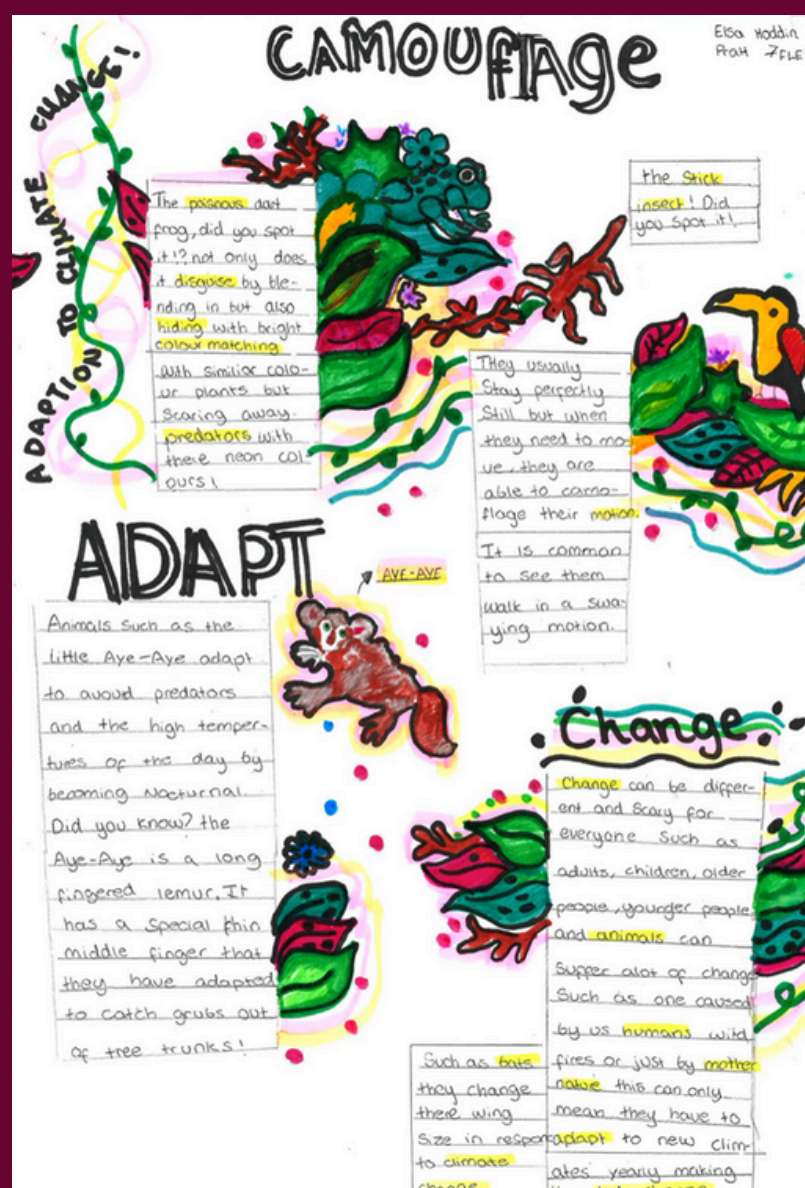 CAMOUflAge
Elsa Hoddin
7FLE
ADAPTION TO CLIMATE CHANGE!
The poisnous dart
frog, did you spot
it!? not only does
it disguise by ble-
nding in but also
hiding with bright
colour matching
with similior colo-
ur plants but
scaring away
predators with
there neon col-
ours!
the Stick
insect! Did
you spot it!
They usually
Stay perfectly
Still but when
they need to mo-
ve, they are
able to camo-
flage their motion.
It is common
to see them
walk in a swa-
ying motion.
ADAPT
AYE-AYE
Animals such as the
little Aye-Aye adapt
to avoud predators
and the high temper-
tures of the day by
becoming Nocturnal.
Did you know? the
Aye-Aye is a long
fingered lemur. It
has a special thin
middle finger that
they have adapted
to catch grubs out
of tree trunks!
Change
Change can be differ-
ent and scary for
everyone such as
adults, children, older
people, younger people
and animals can
suffer alot of change
Such as one caused
by us humans wild
fires or just by mother
nature this can only
mean they have to
adapt to new clim-
ates yearly making
Such as bats
they change
there wing
size in respon
to climate
change